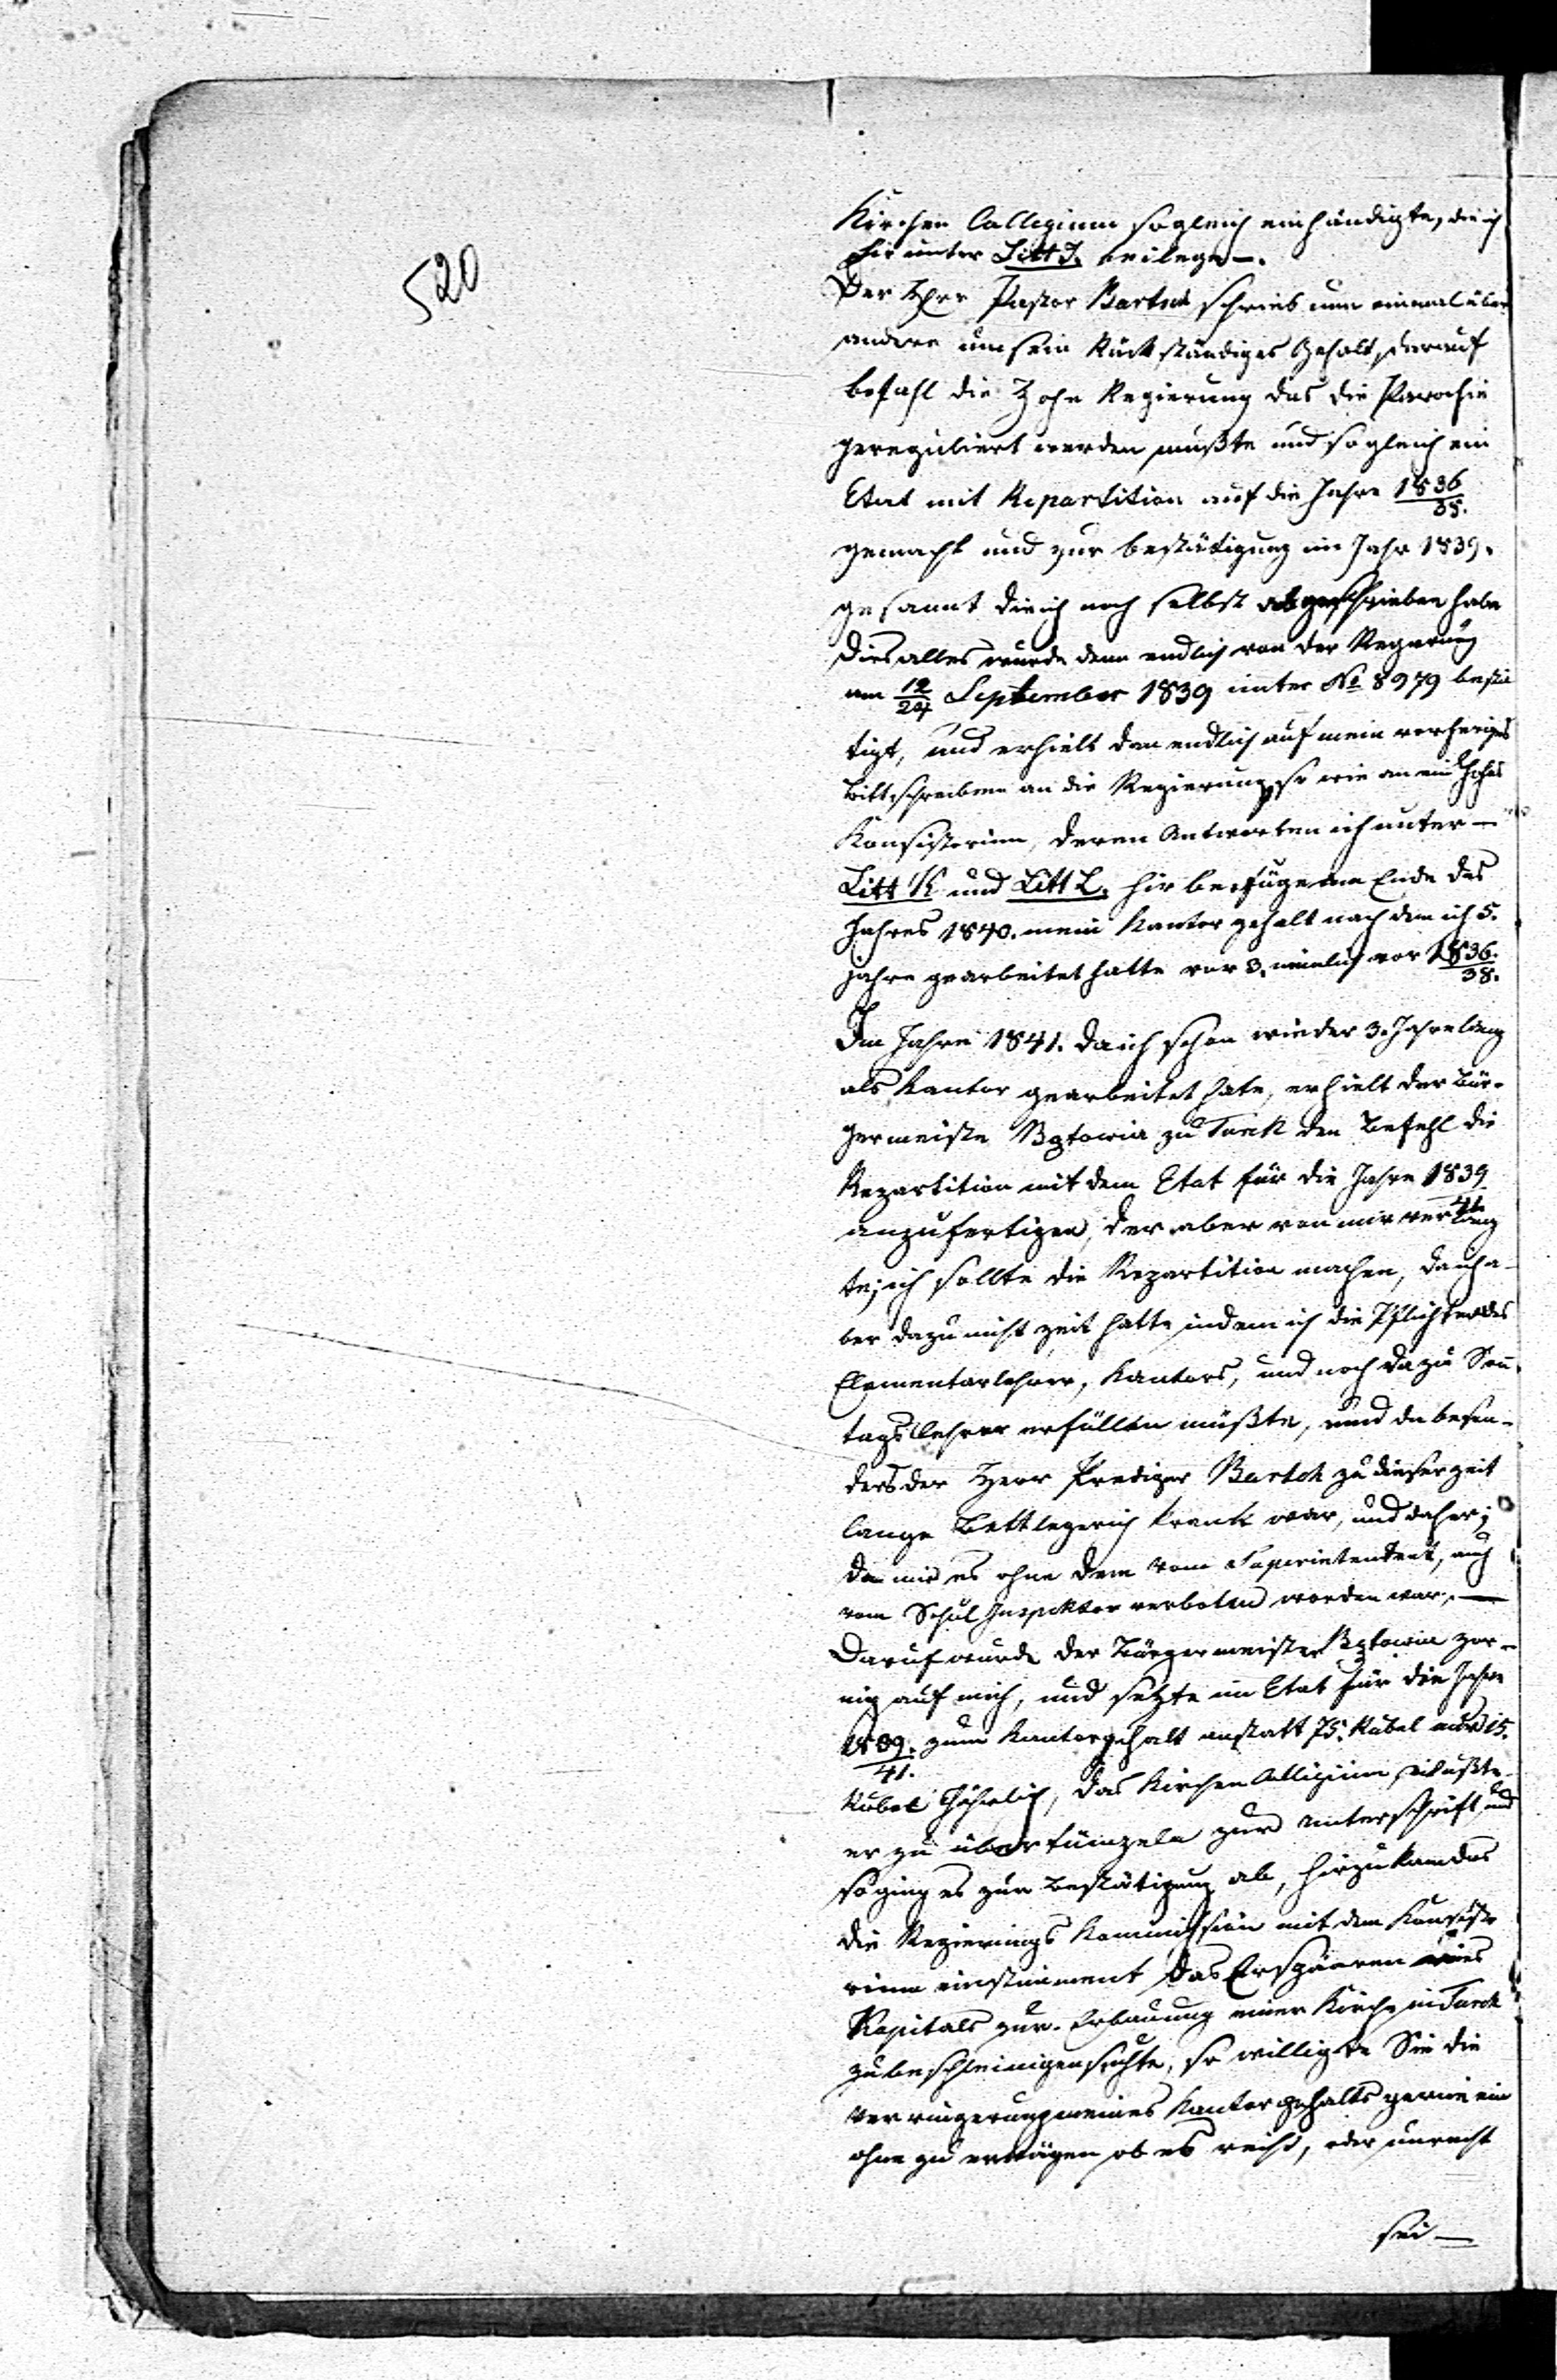 520
Kirchen Collegium sogleich einhändigte, die ich
hir unter Litt J. beilege —.
Der Herr Pastor Bartsch schrieb nun einmal über
andere um sein Rückständiges Gehalt, darauf
befahl die Hohe Regierung das die Parochie
gereguliert werden mußte und sogleich ein
Etat mit Repartition auf die Jahre 1836/38.
gemacht und zur bestätigung im Jahr 1839.
gesannt die ich noch selbst abgeschrieben habe
Dies alles wurde denn endlich von der Regierung
am 12/24 September 1839 unter No 8979 bestä
tigt, und erhielt dan endlich auf mein vorheriges
Bittschreiben an die Regierung, so wie an ein Hohes
Konsistorium, deren Antworten ich unter —
Litt K und Litt L. hir beifüge am Ende des
Jahres 1840. mein Kantor gehalt nach dem ich 5.
jahre gearbeitet hatte vor 3. nämlich vor 1836/38.
Im Jahre 1841. da ich schon wieder 3. Jahre lang
als Kantor gearbeitet hate, erhielt der Bür-
germeister zu Turek den Befehl die
Repartition mit dem Etat für die Jahre 1839/41
anzufertigen, der aber von mir verlang
te, ich sollte die Repartition machen, da ich a-
ber dazu nicht zeit hatte indem ich die Pflichten des
Elementarlehrer, Kantors, und noch dazu Son-
tagslehrer erfüllen müßte, und da beson-
ders der Herr Prediger Bartsch zu dieser zeit
lange Bettlegerich krank war, und daher;
da mir es ohne dem vom Superintendent, auch
vom Schul Inspektor verboten worden war, —
Darauf wurde der Bürgermeister zor-
nig auf mich, und setzte im Etat für die Jahre
1839/41. zum Kantorgehalt anstatt 75. Rubel nur 15.
Rubel Jährlich, das Kirchen Collegium wußte
er zu überfünzeln zur unterschrift und
so ging es zur Bestätigung ab, hirzu kam das
die Regierungs Kommission mit dem Konsisto
rium einstimment das Ersparen eines
Kapitals zur Erbauung einer Kirche in Turek
zu beschleinigen suchte, so willigte Sie die
Verringerung meines Kantor gehalts gerne ein
ohne zu erwägen ob es recht, oder unrecht
sei —